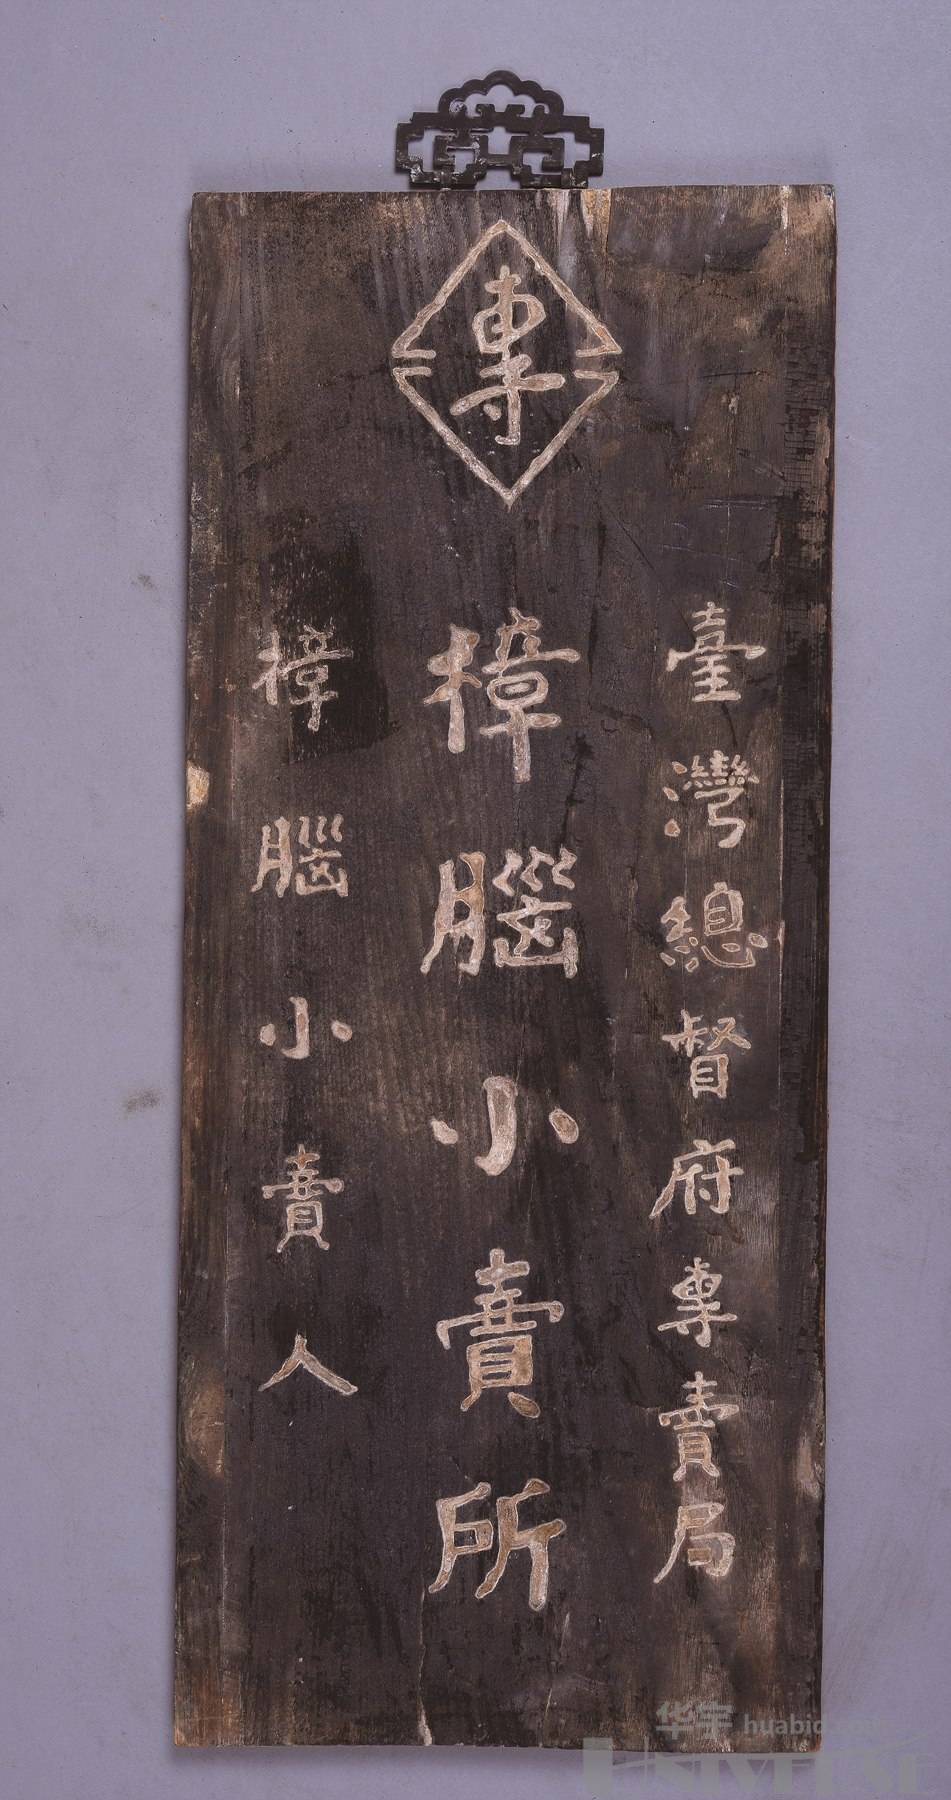 專
臺灣總督府專賣局
樟腦小賣所
樟腦小賣人
华宇 huabid.com
UNIVERSE